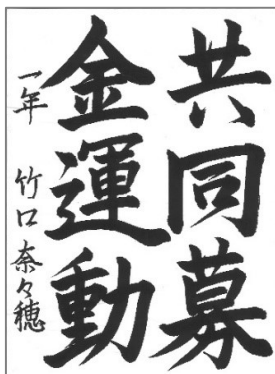 共同募
金運動
一年 竹口奈々穂